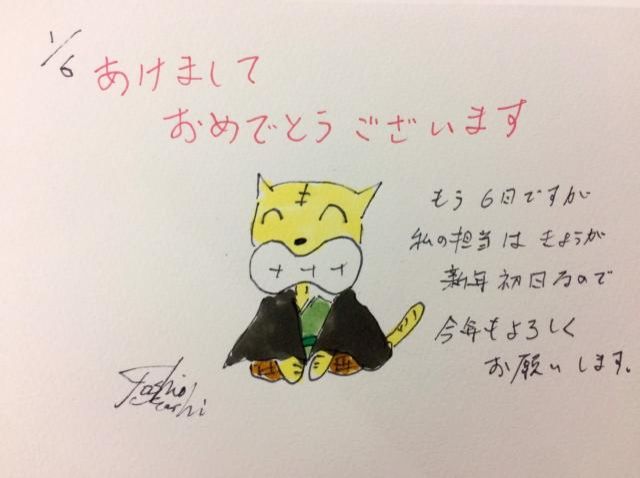 1/6
あけまして
おめでとうございます
もう6日ですが
私の担当はきょうが
新年初日なので
今年もよろしく
お願いします。